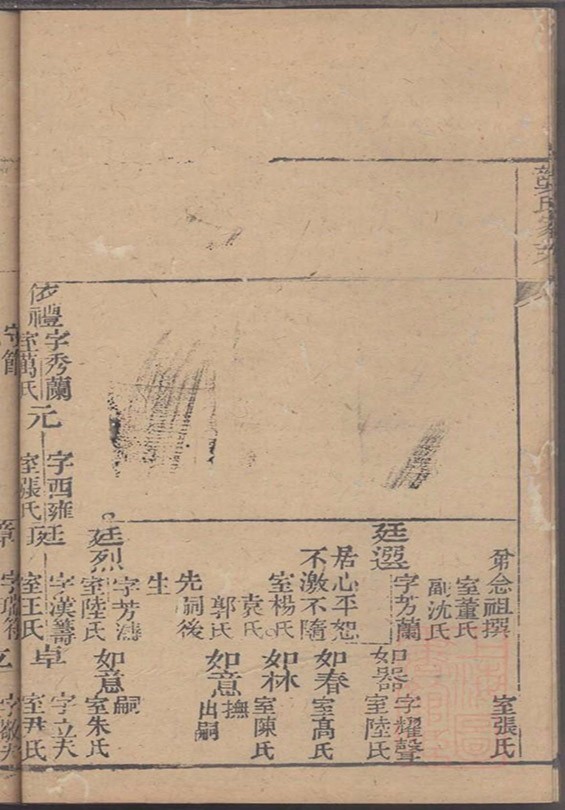 弟念祖撰
室董氏
副沈氏
室張氏
廷選
字芳蘭
如器
字耀聲
室陸氏
居心平恕
不激不隨
如春
室高氏
室楊氏
如林
室陳氏
袁氏
郭氏
如意
撫
出嗣
先嗣後
生
廷烈
字芳濤
室陸氏
如意
嗣
室朱氏
依禮
字秀蘭
室萬氏
元
字西雍
室張氏
廷
字漢籌
室王氏
卓
字立夫
室尹氏
章
字瑞符
字敬夫